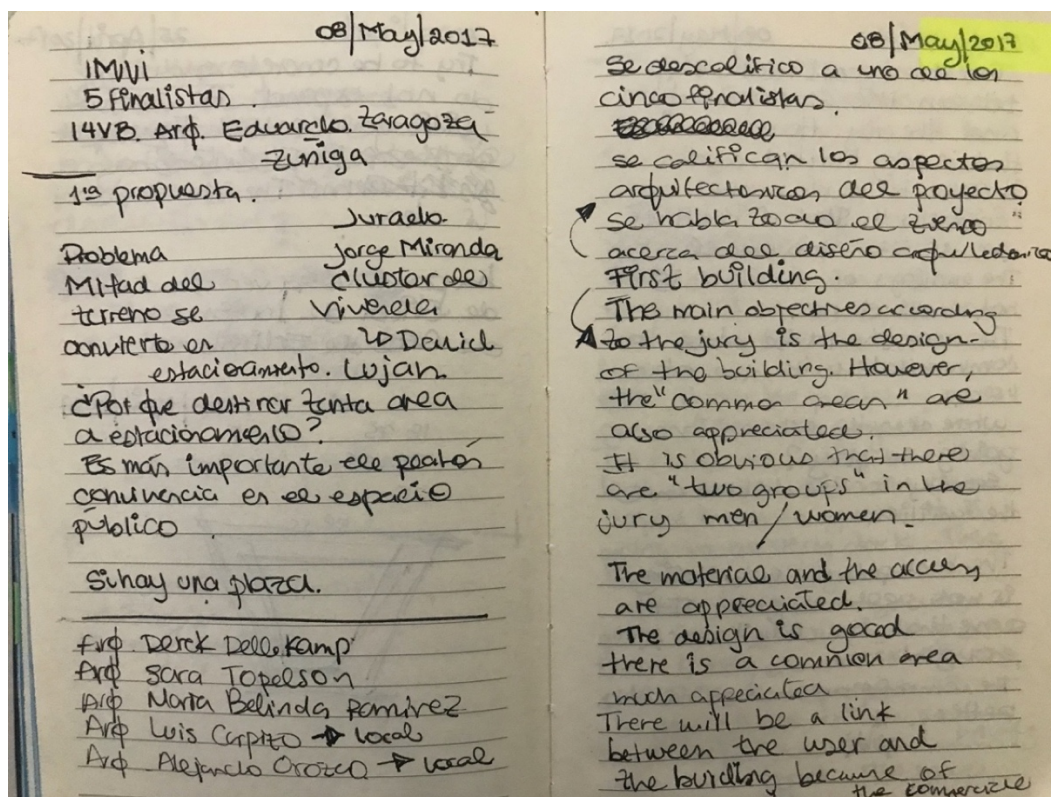 08|May|2017
IMVi
5 finalistas.
14VB. Arq. Eduardo. Zaragoza
Zuñiga
1ra propuesta.
Jurado.
Problema
Mitad del
terreno se
convierte en
estacionamiento.
Jorge Miranda
Cluster de
Vivienda
Daniel
Lujan.
¿Por que destinar tanta area
a estacionamiento?
Es más importante ele peatón
convivencia en el espacio
público
Si hay una plaza.
Arq Derek Dellekamp
Arq Sara Topelson
Arq Maria Belinda Ramirez
Arq Luis Carpizo → local
Arq Alejandro Orozco → local
08|May|2017
Se descalifico a uno de los
cinco finalistas.
se califican los aspectos
arquitectonicos del proyecto
se habla todo el tiempo
acerca del diseño arquitectonico
First building.
The main objectives according
to the jury is the design-
of the building. However,
the "common areas" are
also appreciated.
It is obvious that there
are "two groups" in the
jury men / women.
The material and the access
are appreciated.
The design is good
there is a common area
much appeciated
There will be a link
between the user and
the building because of
the commercial